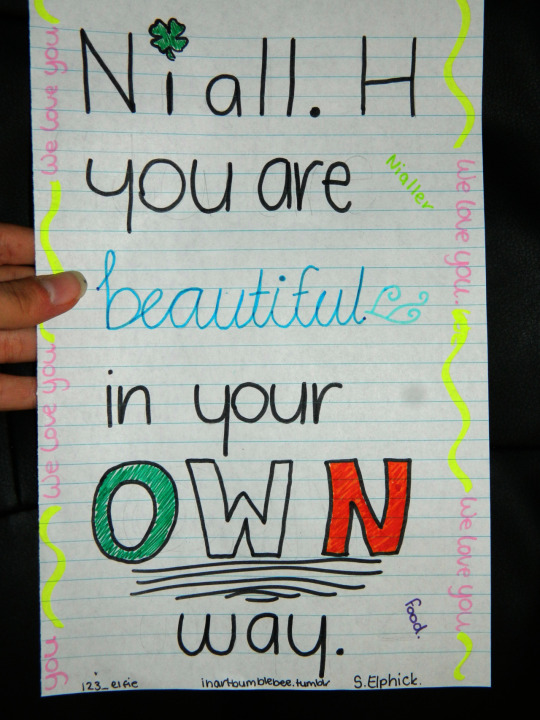 Niall. H
you are
Nialler
beautiful
in your
OWN
way.
food.
We love you
We love you
you
We love you.
We love you
123_elfie
inartbumblebee.tumblr
S.Elphick.